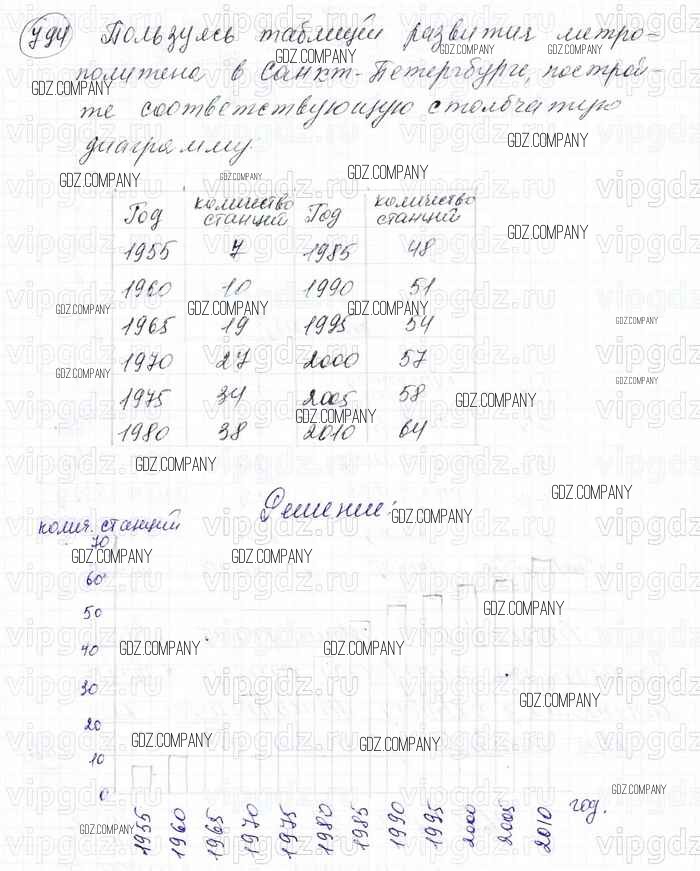 794 Пользуясь таблицей развития метро-
политена в Санкт-Петербурге, построй-
те соответствующую столбчатую
диаграмму.
Год количество станций Год количество станций
1955 7 1985 48
1960 10 1990 51
1965 19 1995 54
1970 27 2000 57
1975 34 2005 58
1980 38 2010 64
Решение:
колич. станций
70
60
50
40
30
20
10
0
1955 1960 1965 1970 1975 1980 1985 1990 1995 2000 2005 2010 год.
GDZ.COMPANY
vipgdz.ru